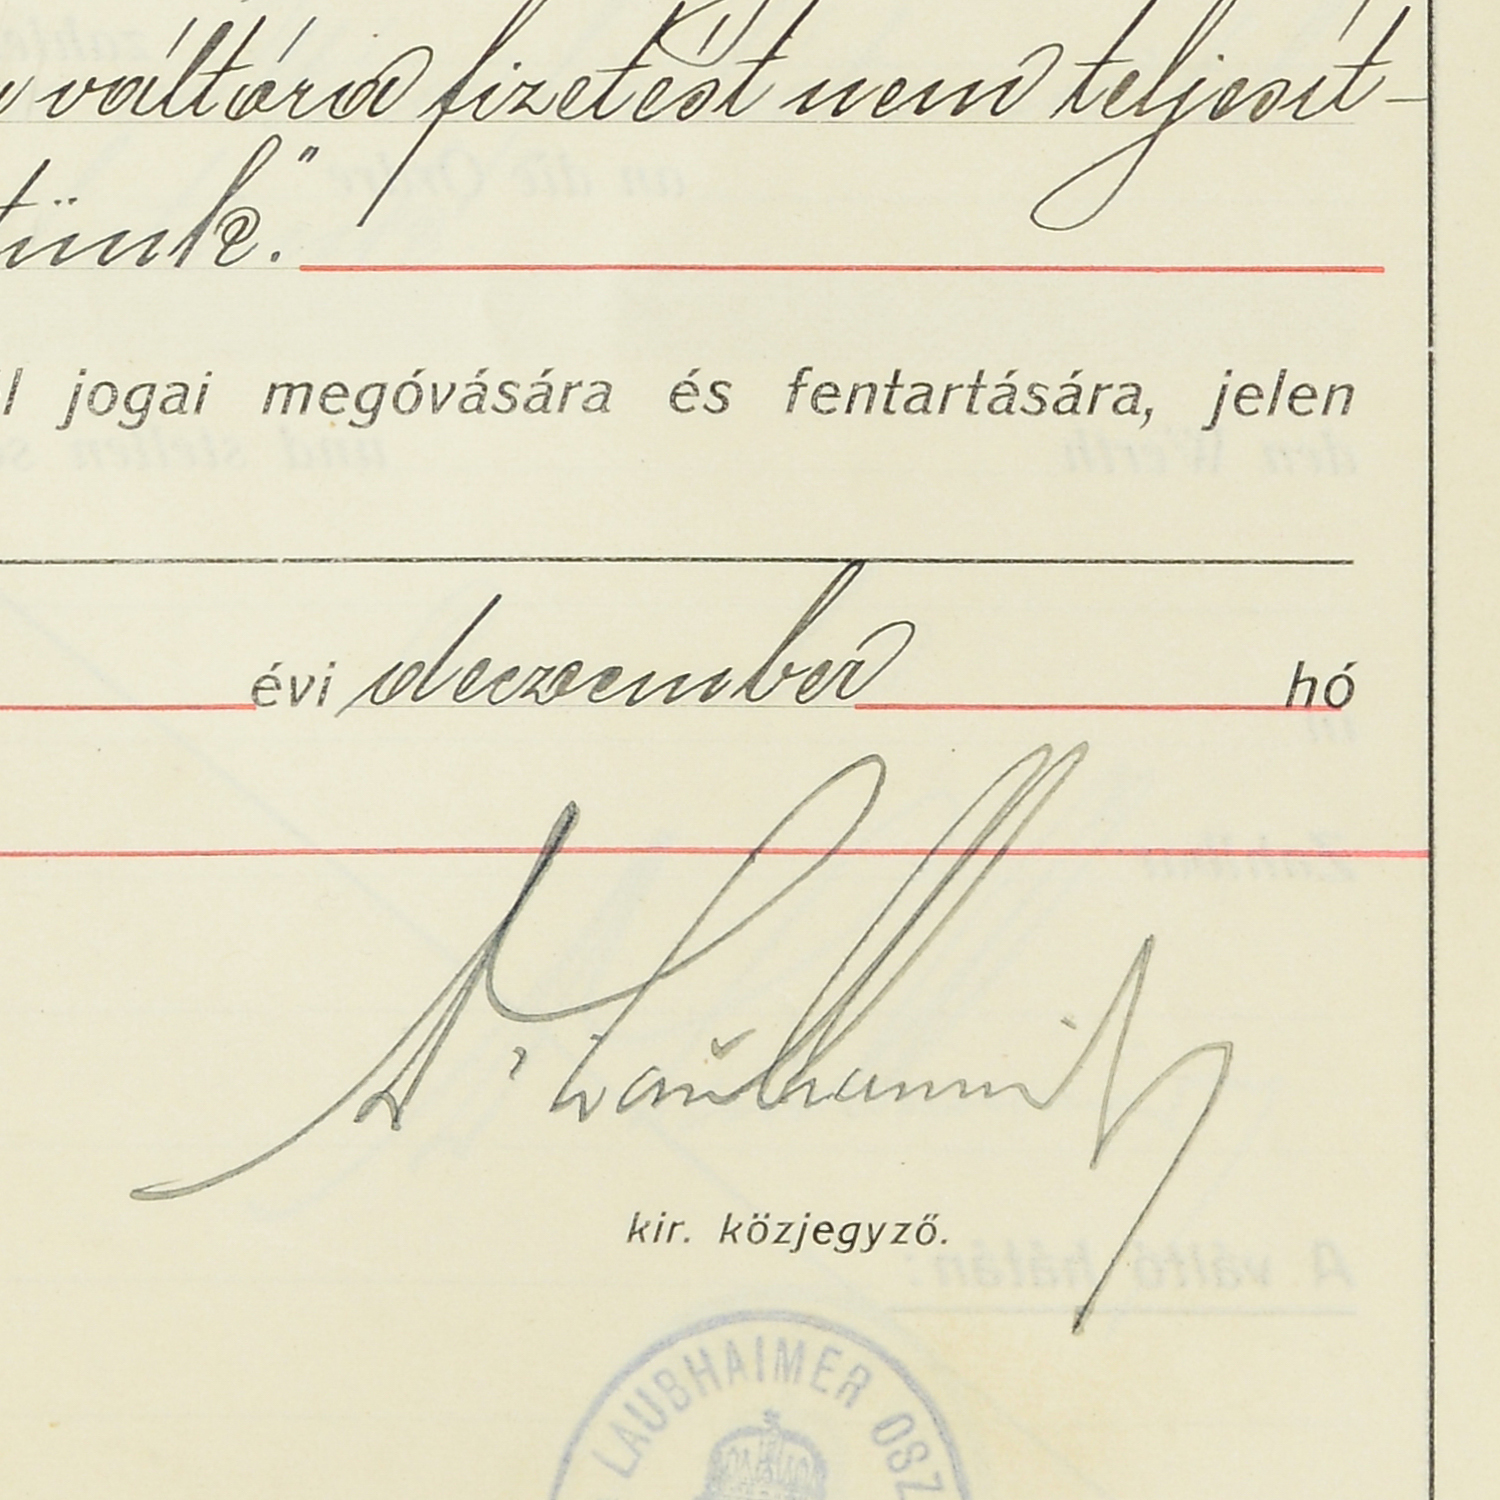 váltóra fizetést nem teljesít-
tünk."
jogai megóvására és fentartására, jelen
évi deczember hó
kir. közjegyző.
LAUBHAIMER OSZ